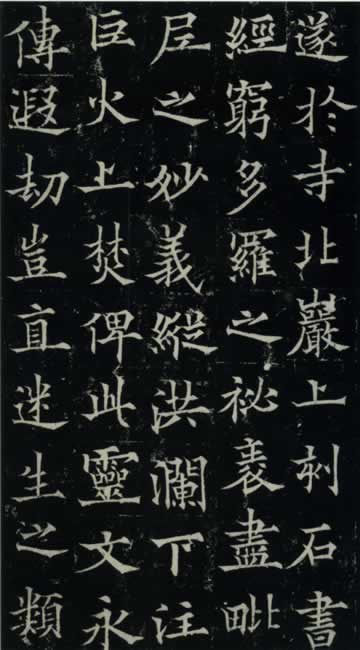 遂於寺北巖上刻石書
經窮多羅之祕袠盡毗
尼之妙義縱洪瀾下注
巨火上焚俾此靈文永
傳遐劫豈直迷生之類